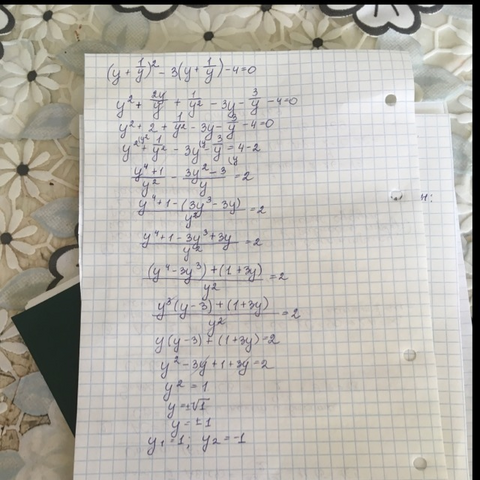 (y + 1/y)² - 3(y + 1/y) - 4 = 0
y² + 2y/y + 1/y² - 3y - 3/y - 4 = 0
y² + 2 + 1/y² - 3y - 3/y - 4 = 0
y² + 1/y² - 3y - 3/y = 4 - 2
(y⁴ + 1)/y² - (3y² - 3)/y = 2
(y⁴ + 1 - (3y³ - 3y))/y² = 2
(y⁴ + 1 - 3y³ + 3y)/y² = 2
((y⁴ - 3y³) + (1 + 3y))/y² = 2
(y³(y - 3) + (1 + 3y))/y² = 2
y(y - 3) + (1 + 3y) = 2
y² - 3y + 1 + 3y = 2
y² = 1
y = ±√1
y = ±1
y₁ = 1; y₂ = -1